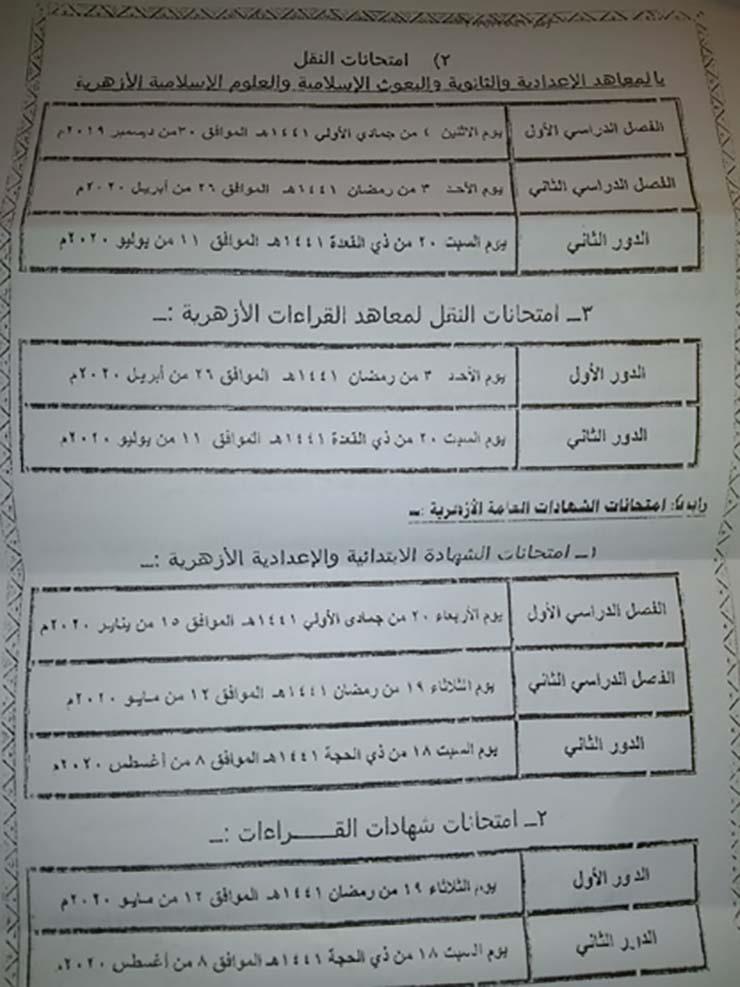 ٢) امتحانات النقل
بالمعاهد الإعدادية والثانوية والبعوث الإسلامية والعلوم الإسلامية الأزهرية
الفصل الدراسي الأول يوم الاثنين ٤ من جمادي الأولي ١٤٤١هـ الموافق ٣٠من ديسمبر ٢٠١٩م
الفصل الدراسي الثاني يوم الأحد ٣ من رمضان ١٤٤١هـ الموافق ٢٦ من أبريل ٢٠٢٠م
الدور الثاني يوم السبت ٢٠ من ذي القعدة ١٤٤١هـ الموافق ١١ من يوليو ٢٠٢٠م
٣ـ امتحانات النقل لمعاهد القراءات الأزهرية :ـ
الدور الأول يوم الأحد ٣ من رمضان ١٤٤١هـ الموافق ٢٦ من أبريل ٢٠٢٠م
الدور الثاني يوم السبت ٢٠ من ذي القعدة ١٤٤١هـ الموافق ١١ من يوليو ٢٠٢٠م
رابعا: امتحانات الشهادات العامة الأزهرية :ـ
١ـ امتحانات الشهادة الابتدائية والإعدادية الأزهرية :ـ
الفصل الدراسي الأول يوم الأربعاء ٢٠ من جمادى الأولي ١٤٤١هـ الموافق ١٥ من يناير ٢٠٢٠م
الفصل الدراسي الثاني يوم الثلاثاء ١٩ من رمضان ١٤٤١هـ الموافق ١٢ من مايو ٢٠٢٠م
الدور الثاني يوم السبت ١٨ من ذي الحجة ١٤٤١هـ الموافق ٨ من أغسطس ٢٠٢٠م
٢ـ امتحانات شهادات القـــــراءات :ـ
الدور الأول يوم الثلاثاء ١٩ من رمضان ١٤٤١هـ الموافق ١٢ من مايو ٢٠٢٠م
الدور الثاني يوم السبت ١٨ من ذي الحجة ١٤٤١هـ الموافق ٨ من أغسطس ٢٠٢٠م